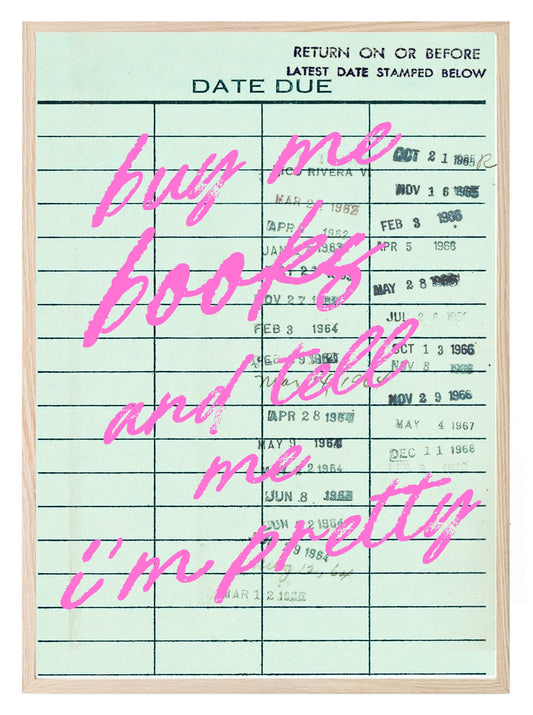 RETURN ON OR BEFORE
LATEST DATE STAMPED BELOW
DATE DUE
buy me
books
and tell
me
i'm pretty
RIVERA
MAR 1962
APR 1962
JAN 1963
NOV 27
FEB 3 1964
APR 28 1964
MAY 9 1964
1964
JUN 8
JUN 22 1964
1964
MAR 12
OCT 21 1965 R
NOV 16 1965
FEB 3 1966
APR 5 1966
MAY 28 1966
JUL
OCT 13 1966
NOV 8
NOV 29 1966
MAY 4 1967
DEC 11 1968